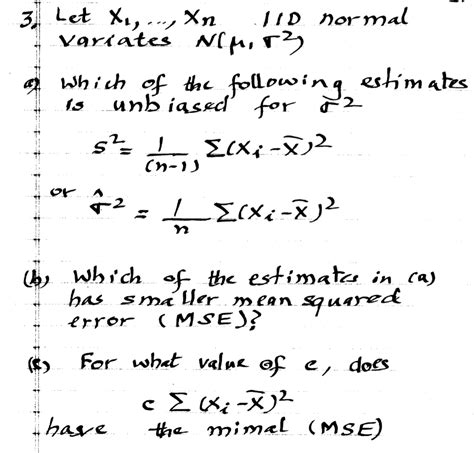 3. Let X₁, ..., Xn IID normal
variates N(μ, σ²)
a) which of the following estimates
is unbiased for σ²
s² = 1/(n-1) Σ(Xi - X̄)²
or σ̂² = 1/n Σ(Xi - X̄)²
(b) Which of the estimates in (a)
has smaller mean squared
error (MSE)?
(c) For what value of c, does
c Σ (Xi - X̄)²
have the mimal (MSE)